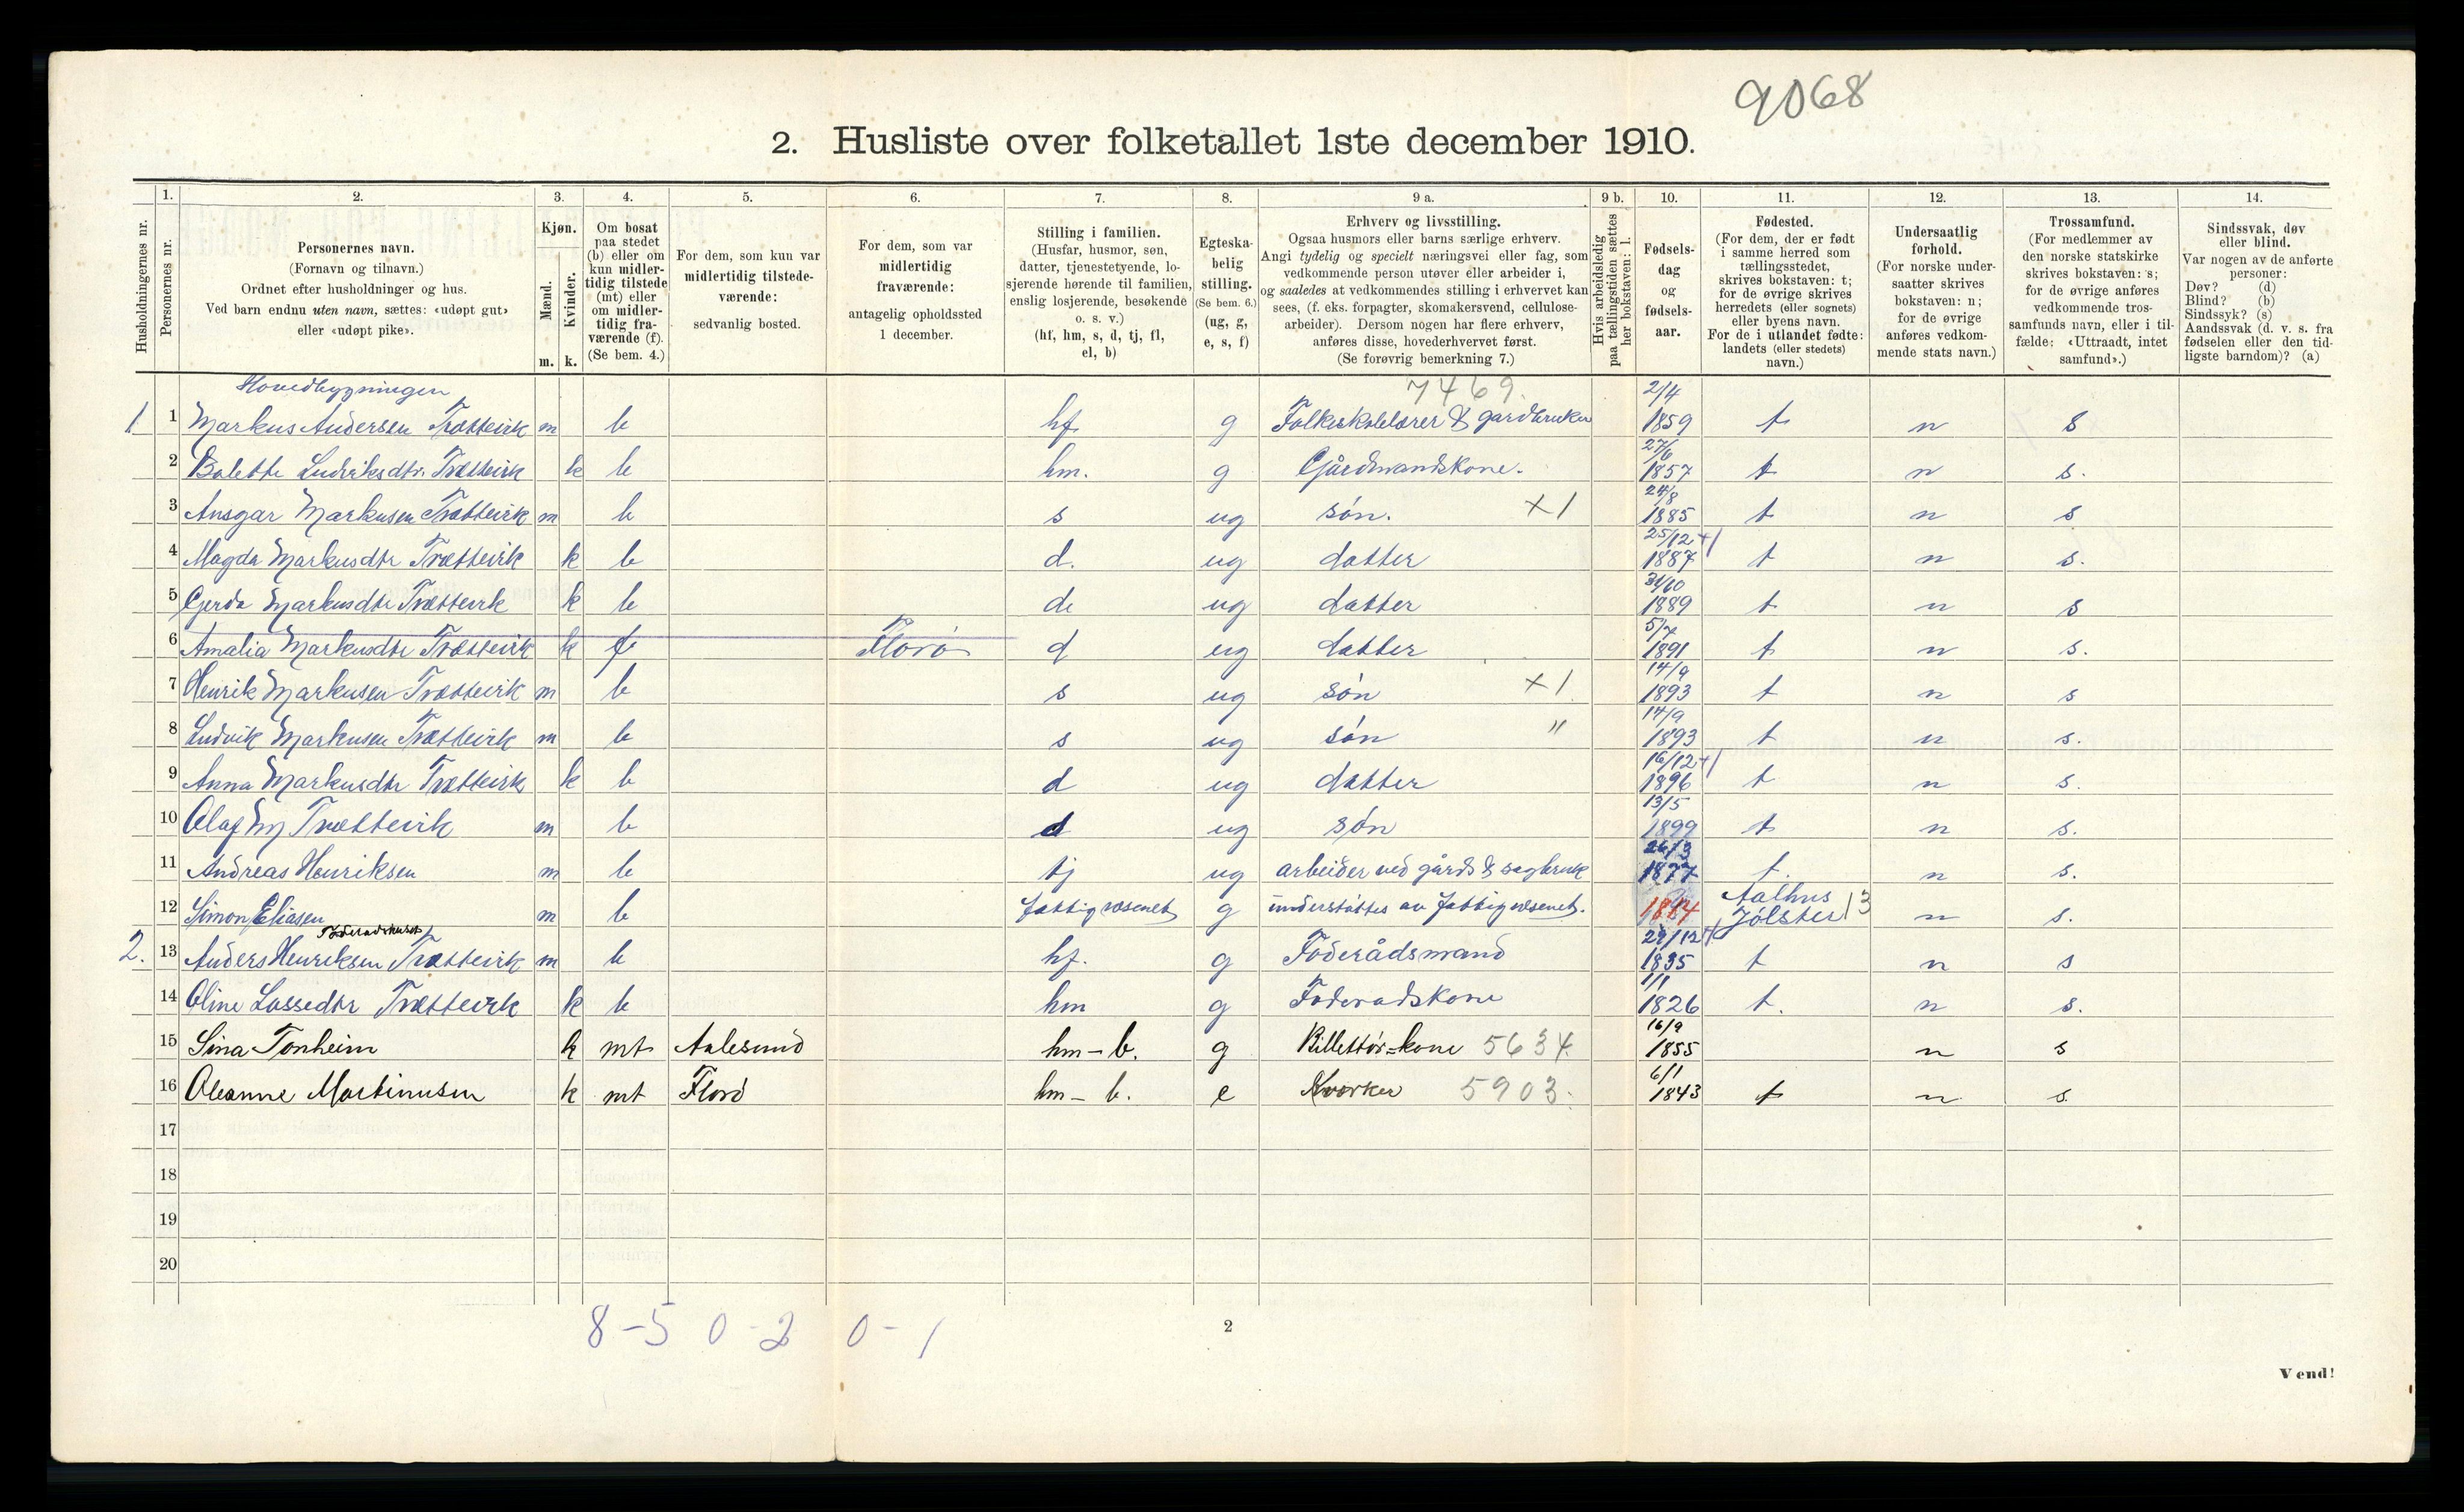 9068
2. Husliste over folketallet 1ste december 1910.
Husholdningernes nr.
1. Personernes nr.
2. Personernes navn.
(Fornavn og tilnavn.)
Ordnet efter husholdninger og hus.
Ved barn endnu uten navn, sættes: «udøpt gut»
eller «udøpt pike».
3. Kjøn.
Mænd. m.
Kvinder. k.
4. Om bosat
paa stedet
(b) eller om
kun midler-
tidig tilstede
(mt) eller
om midler-
tidig fra-
værende (f).
(Se bem. 4.)
5. For dem, som kun var
midlertidig tilstede-
værende:
sedvanlig bosted.
6. For dem, som var
midlertidig
fraværende:
antagelig opholdssted
1 december.
7. Stilling i familien.
(Husfar, husmor, søn,
datter, tjenestetyende, lo-
sjerende hørende til familien,
enslig losjerende, besøkende
o. s. v.)
(hf, hm, s, d, tj, fl,
el, b)
8. Egteska-
belig
stilling.
(Se bem. 6.)
(ug, g,
e, s, f)
9 a. Erhverv og livsstilling.
Ogsaa husmors eller barns særlige erhverv.
Angi tydelig og specielt næringsvei eller fag, som
vedkommende person utøver eller arbeider i,
og saaledes at vedkommendes stilling i erhvervet kan
sees, (f. eks. forpagter, skomakersvend, cellulose-
arbeider). Dersom nogen har flere erhverv,
anføres disse, hovederhvervet først.
(Se forøvrig bemerkning 7.)
9 b. Hvis arbeidsledig
paa tællingstiden sættes
her bokstaven: l.
10. Fødsels-
dag
og
fødsels-
aar.
11. Fødested.
(For dem, der er født
i samme herred som
tællingsstedet,
skrives bokstaven: t;
for de øvrige skrives
herredets (eller sognets)
eller byens navn.
For de i utlandet fødte:
landets (eller stedets)
navn.)
12. Undersaatlig
forhold.
(For norske under-
saatter skrives
bokstaven: n;
for de øvrige
anføres vedkom-
mende stats navn.)
13. Trossamfund.
(For medlemmer av
den norske statskirke
skrives bokstaven: s;
for de øvrige anføres
vedkommende tros-
samfunds navn, eller i til-
fælde: «Uttraadt, intet
samfund».)
14. Sindssvak, døv
eller blind.
Var nogen av de anførte
personer:
Døv? (d)
Blind? (b)
Sindssyk? (s)
Aandssvak (d. v. s. fra
fødselen eller den tid-
ligste barndom)? (a)
Hovedbygningen 7469.
1 1 Markus Andersen Trættevik m b hf g Folkeskolelærer & gardbruker 2/4 1859 t n s
2 Bolette Ludviksdtr. Trættevik k b hm. g Gårdmandskone. 27/6 1857 t n s.
3 Ansgar Markusen Trættevik m b s ug søn. x1 24/8 1885 t n s
4 Magda Markusdtr Trættevik k b d. ug datter 25/12 +1 1887 t n s.
5 Gjerda Markusdtr Trættevik k b d ug datter 31/10 1889 t n s
6 Amalia Markusdtr Trættevik k f Florø d ug datter 5/7 1891 t n s.
7 Henrik Markusen Trættevik m b s ug søn x1. 14/9 1893 t n s
8 Ludvik Markusen Trættevik m b s ug søn " 14/9 1893 t n s.
9 Anna Markusdtr Trættevik k b d ug datter 16/12 +1 1896 t n s.
10 Olaf M Trættevik m b d ug søn 13/5 1899 t n s.
11 Andreas Henriksen m b tj ug arbeider ved gårds & sagbruk 26/3 1877 t. n s.
12 Simon Eliasen m b fattigvæsenet g understøttes av fattigvæsenet. 1884 Aalhus Jølster 13 n s.
Føderadshuset
2. 13 Anders Henriksen Trættevik m b hf. g Føderådsmand 29/12 +1 1835 t n s
14 Oline Lassedtr Trættevik k b hm g Føderadskone 1/1 1826 t. n s.
15 Sina Tonheim k mt Aalesund hm - b. g Billettør-kone 5634. 16/9 1855 n s
16 Oleanne Martinusen k mt Florø hm - b. e 5903. 6/1 1843 t n s.
17
18
19
20
8-5 0-2 0-1
2
Vend!